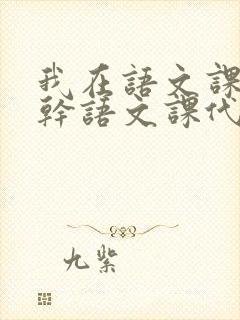 我在語文課
幹語文課代
九紫